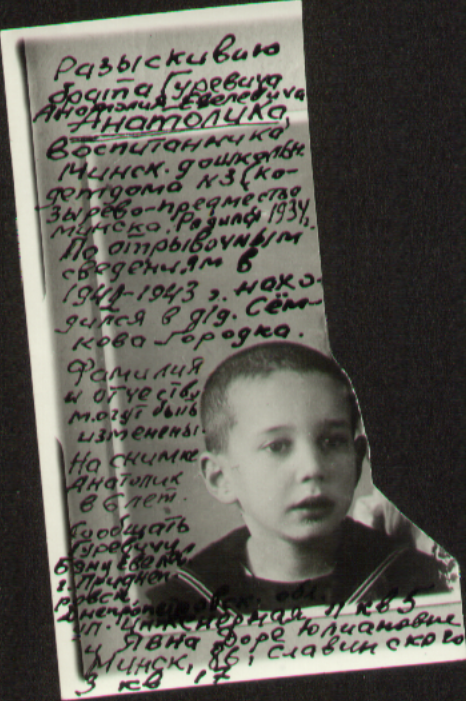 Разыскиваю
брата Гуревича
Анатолия Евелевича
Анатолика,
воспитанника
Минск. дошкольн.
детдома №3 (Ко-
зырево-предместье
Минска. Родился 1934г.
По отрывочным
сведениям в
1941-1943 г. нахо-
дился в д/д. Сём-
кова Городка.
Фамилия
и отчество
могут быть
изменены.
На снимке
Анатолик
в 6 лет.
Сообщать
Гуревичу
г. Приднеп-
ровск.
Днепропетровск. обл.
ул. Инженерная, кв 5
и Явна Форе Юлиановне
Минск, 86, Славинского
3 кв 17